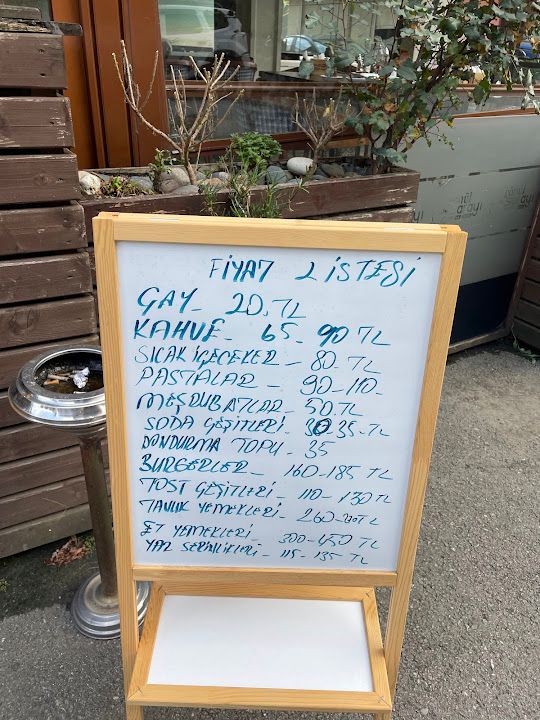 FİYAT LİSTESİ
ÇAY - 20.TL
KAHVE - 65 - 90 TL
SICAK İÇECEKLER - 80.TL
PASTALAR - 90-110-
MEŞRUBATLAR - 50.TL
SODA ÇEŞİTLERİ - 30 35-TL
DONDURMA TOPU - 35
BURGERLER - 160-185 TL
TOST ÇEŞİTLERİ - 110-130 TL
TAVUK YEMEKLERİ - 260-TL
ET YEMEKLERİ - 300-450 TL
YAZ SERİNLİKLERİ - 115-135 TL